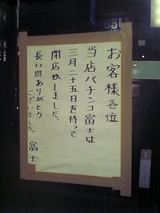 お客様各位
当店パチンコ富士は
三月二十五日を持って
閉店致しました。
長い間ありがとう
ございました。
富士